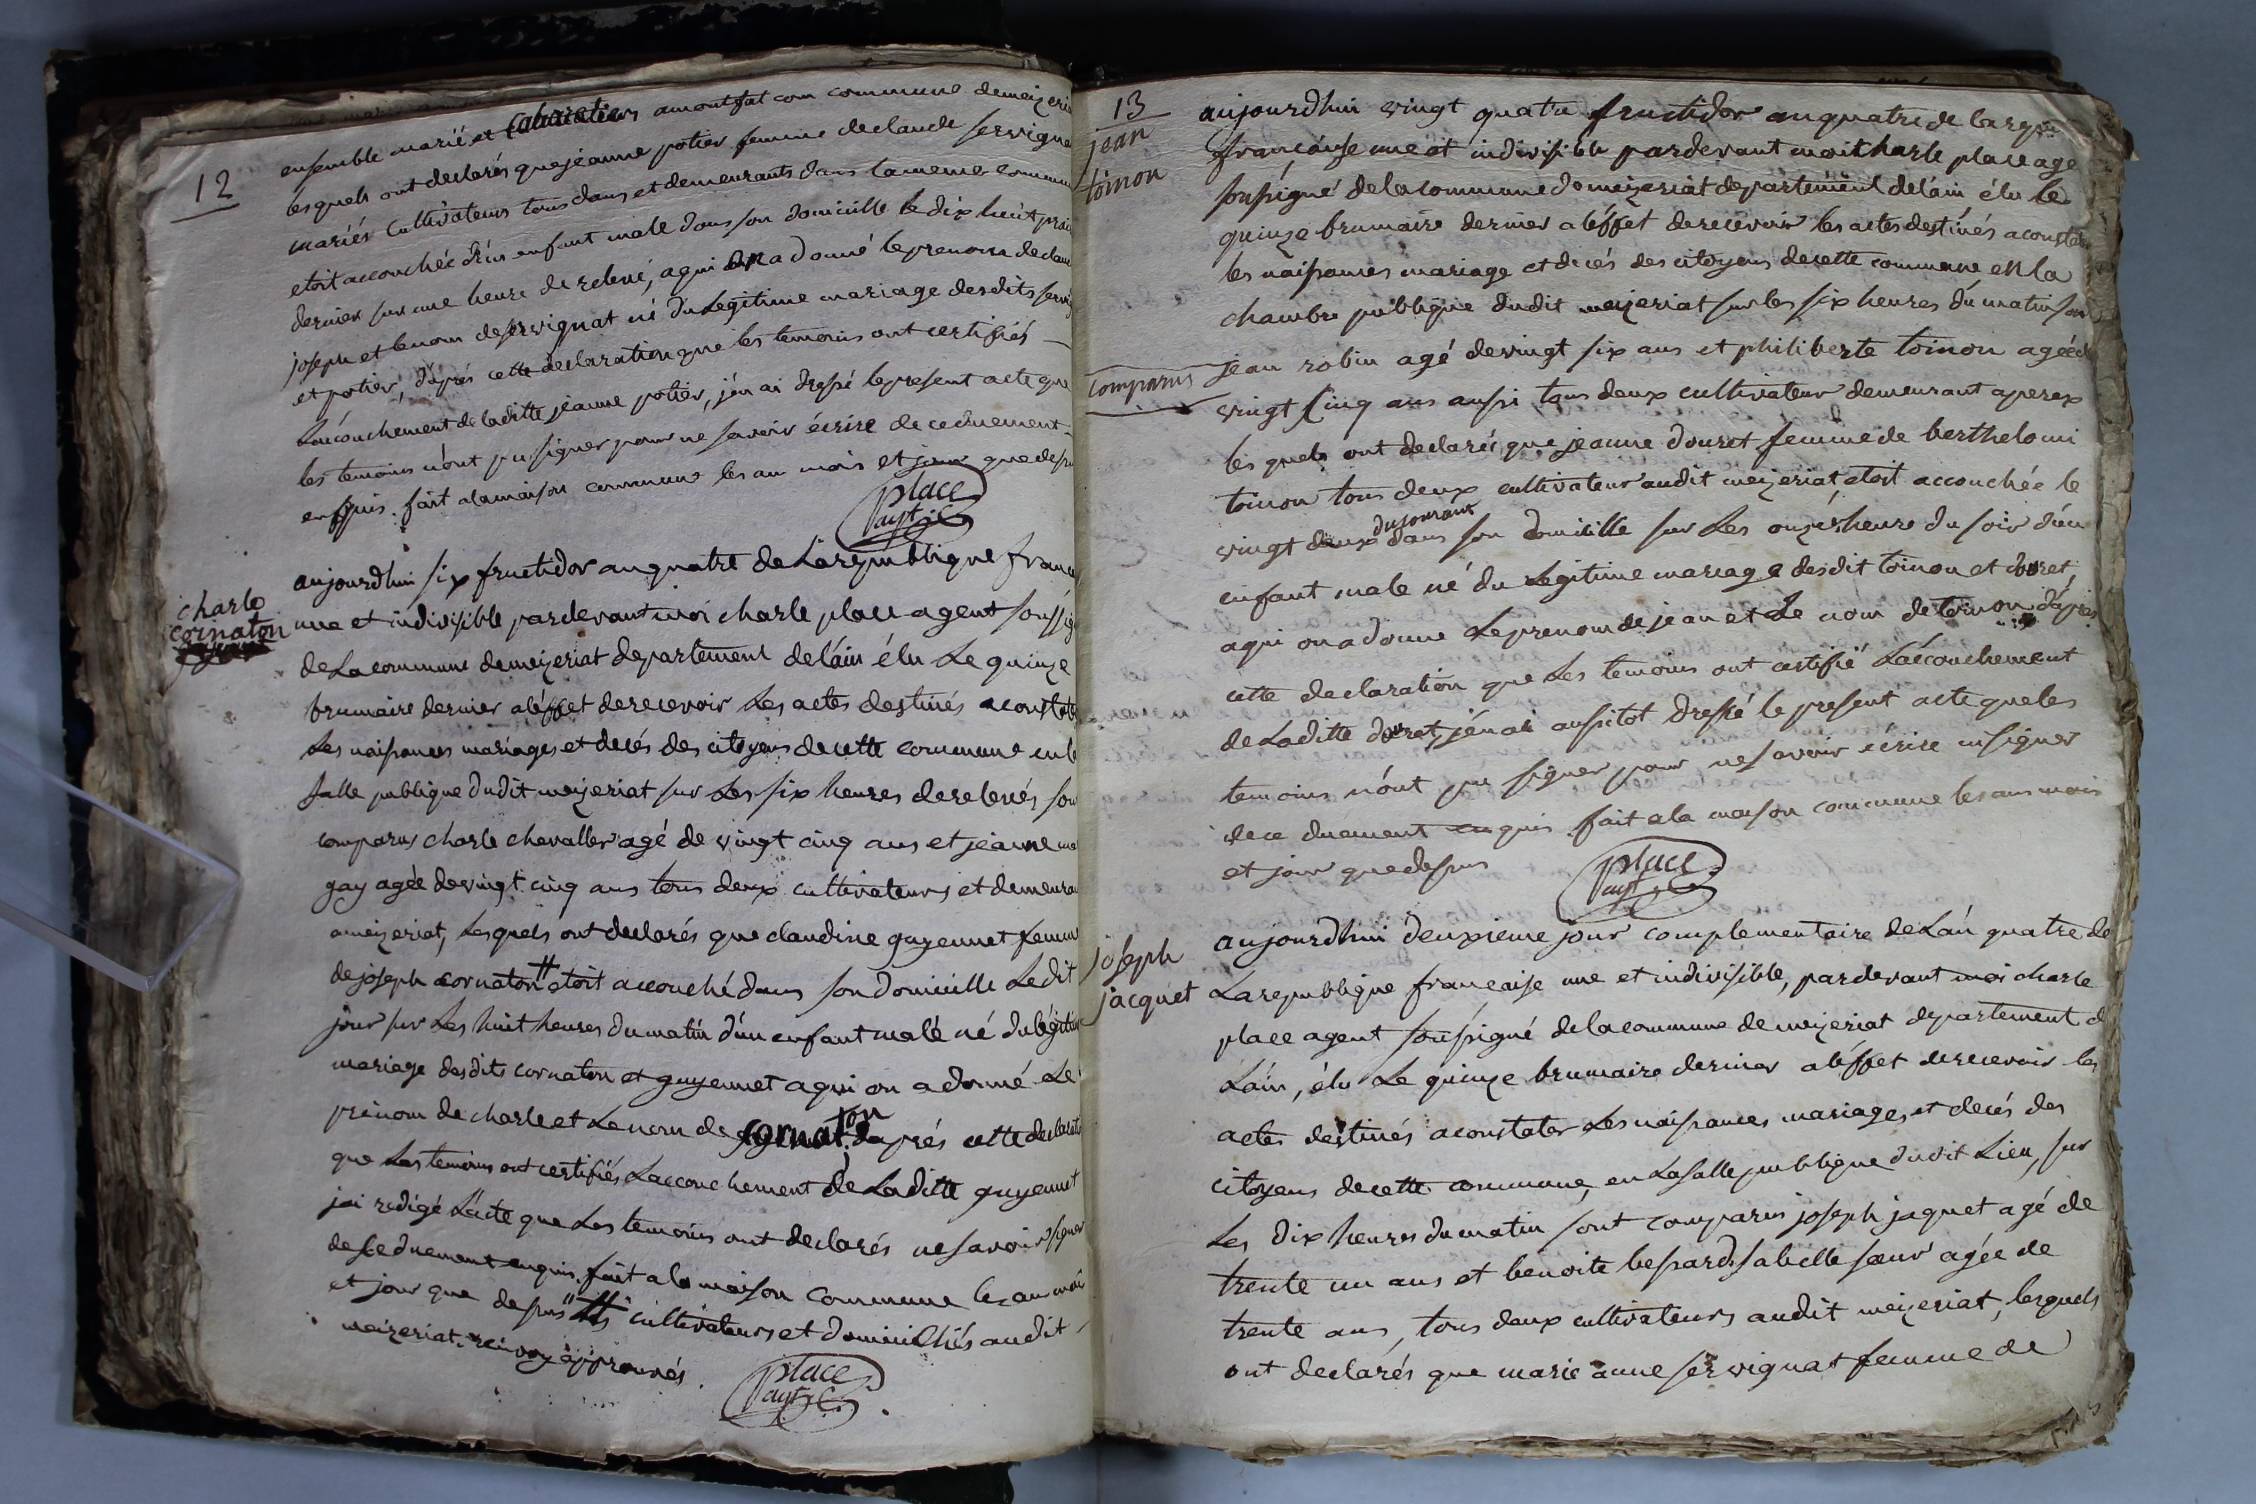 12
ensemble marié et cabaretiers a montfalcon commune de meizeria
lesquels ont declarés que jeanne potier femme de claude servigna
mariés cultivateurs tous deux et demeurants dans la meme commun
etoit accouchée d'un enfant male dans son domicille le dix huit
dernier sur une heure de relevé, a qui on a donné le prenom de clau
joseph et le nom de servignat né du legitime mariage desdits servig
et potier, d'après cette declaration que les temoins ont certifiés
L'accouchement de laditte jeanne potier, j'en ai dressé le present acte que
les temoins n'ont pu signer pour ne savoir écrire de ce duement
enquis. fait a la maison commune les an mois et jour que dessu
place
agt
charle
cornaton
aujourdhui six fructidor an quatre de La republique franc
une et indivisible pardevant moi charle place agent soussig
de La commune de meizeriat departement de l'ain élu Le quinze
brumaire dernier a l'éffet de recevoir Les actes destinés a constat
Les naissances mariages et decés des citoyens de cette commune en l
salle publique dudit meizeriat sur Les six heures de relevés son
comparus charle chevallier agé de vingt cinq ans et jeanne
gay agée de vingt cinq ans tous deux cultivateurs et demeura
a meizeriat, Lesquels ont declarés que claudine guyennet femme
de joseph cornaton # etoit accouché dans son domicille Ledit
jour sur Les huit heures du matin d'un enfant male né du légitim
mariage desdits cornaton et guyennet a qui on a donné Le
prénom de charle et Le nom de cornaton d'après cette declarati
que Les temoins ont certifiés L'accouchement de Laditte guyennet
j'ai redigé L'acte que Les temoins ont declarés ne savoir signer
de ce duement enquis, fait a la maison commune les an moi
et jour que dessus # cultivateurs et domiciliés audit
meizeriat. renvoy approuvés.
place
agt
13
jean
toinon
aujourdhui vingt quatre fructidor an quatre de la rep
françoise une et indivisible pardevant moi charle place age
soussigné de la commune de meizeriat departement de l'ain élu le
quinze brumaire dernier a l'éffet de recevoir les actes destinés a constat
les naissances mariage et decés des citoyens de cette commune en la
chambre publique dudit meizeriat sur les six heures du matin son
comparus
jean robin agé de vingt six ans et philiberte toinon agée d
vingt cinq ans aussi tous deux cultivateur demeurant a perex
les quels ont declarés que jeanne douret femme de berthelomi
toinon tous deux cultivateur audit meizeriat, etoit accouchée le
vingt deux du courant dans son domicille sur Les onzes heure du soir d'un
enfant male né du Legitime mariage desdit toinon et douret,
a qui on a donne Le prenom de jean et Le nom de toinon d'après
cette declaration que Les temoins ont certifié L'accouchement
de Laditte douret, j'en ai aussitot dressé le present acte que les
temoins n'ont pu signer pour ne savoir écrire ni signer
de ce duement enquis fait a la maison commune les ans mois
et jour que dessus
place
agt
joseph
jacquet
aujourdhui deuxieme jour complementaire de L'an quatre de
La republique francaise une et indivisible, pardevant moi charle
place agent soussigné de la commune de meizeriat departement d
L'ain, élu Le quinze brumaire dernier a l'éffet de recevoir les
actes destinés a constater Les naissances mariages et decés des
citoyens de cette commune, en La salle publique dudit Lieu, sur
Les dix heures du matin sont comparus joseph jaquet agé de
trente un ans et benoite bessard sa belle sœur agée de
trente ans, tous deux cultivateurs audit meizeriat, lesquels
ont declarés que marie anne servignat femme de